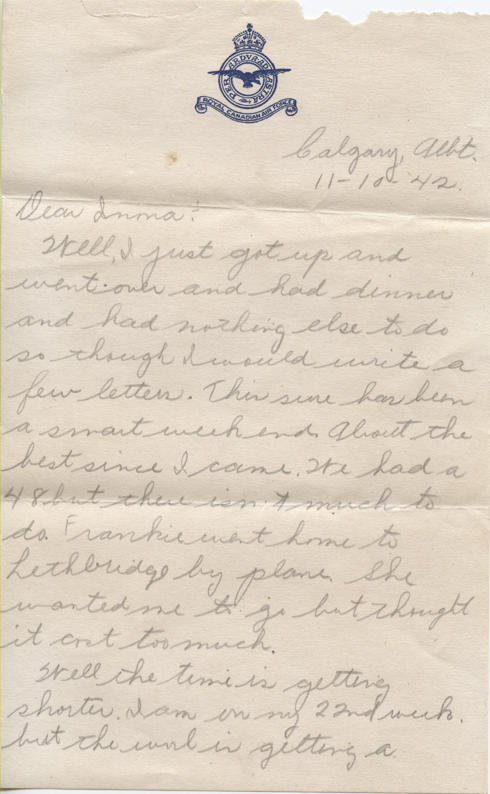 PER ARDVA AD ASTRA
ROYAL CANADIAN AIR FORCE
Calgary, Albt.
11-10-42.
Dear Inma:
Well, I just got up and
went over and had dinner
and had nothing else to do
so though I would write a
few letters. This sure has been
a smart week end. About the
best since I came. We had a
48 but there isn't much to
do. Frankie went home to
Lethbridge by plane. She
wanted me to go but thought
it cost too much.
Well the time is getting
shorter. I am on my 22nd week.
but the work is getting a